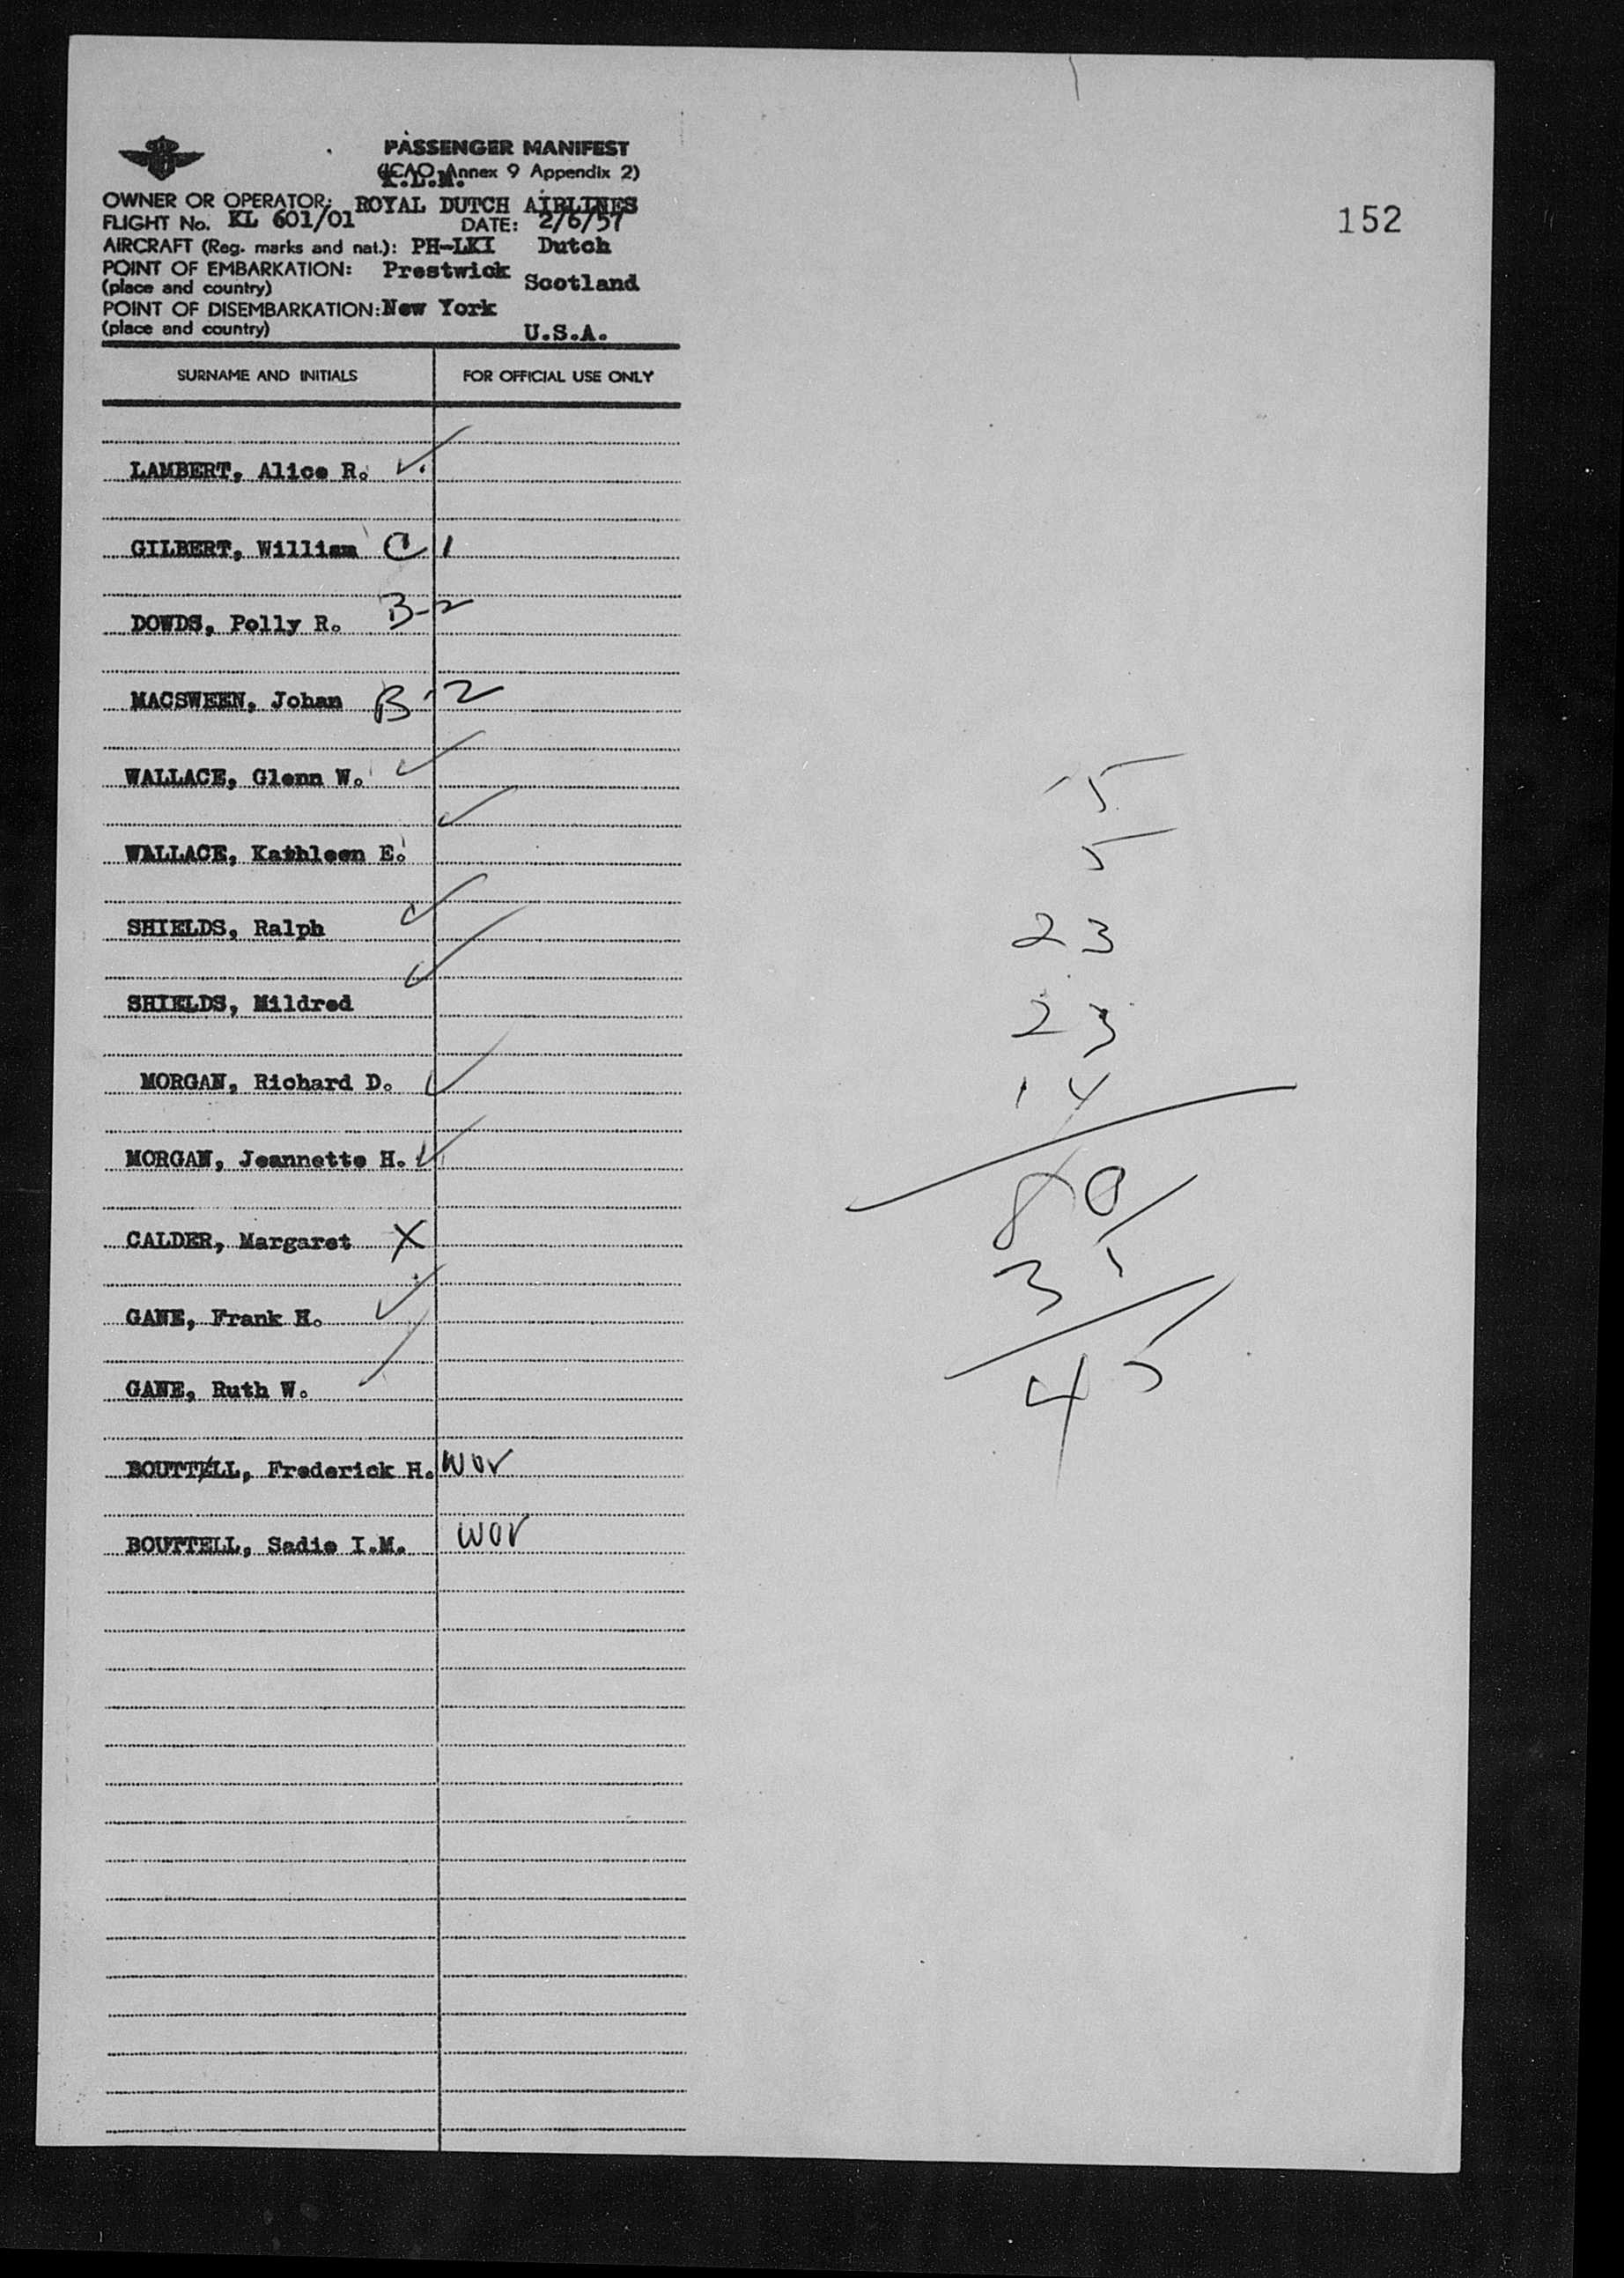 PASSENGER MANIFEST
(ICAO Annex 9 Appendix 2)
K.L.M.
OWNER OR OPERATOR: ROYAL DUTCH AIRLINES
FLIGHT No. KL 601/01 DATE: 2/6/57
152
AIRCRAFT (Reg. marks and nat.): PH-LKI Dutch
POINT OF EMBARKATION: Prestwick
(place and country) Scotland
POINT OF DISEMBARKATION: New York
(place and country) U.S.A.
SURNAME AND INITIALS FOR OFFICIAL USE ONLY
LAMBERT, Alice R.
GILBERT, William C 1
DOWDS, Polly R. B-2
MACSWEEN, Johan B-2
WALLACE, Glenn W.
5
WALLACE, Kathleen E.
5
SHIELDS, Ralph
23
SHIELDS, Mildred
23
MORGAN, Richard D.
14
MORGAN, Jeannette H.
80
CALDER, Margaret X
3
GANE, Frank H.
GANE, Ruth W.
45
BOUTTELL, Frederick H. WOV
BOUTTELL, Sadie I.M. WOV